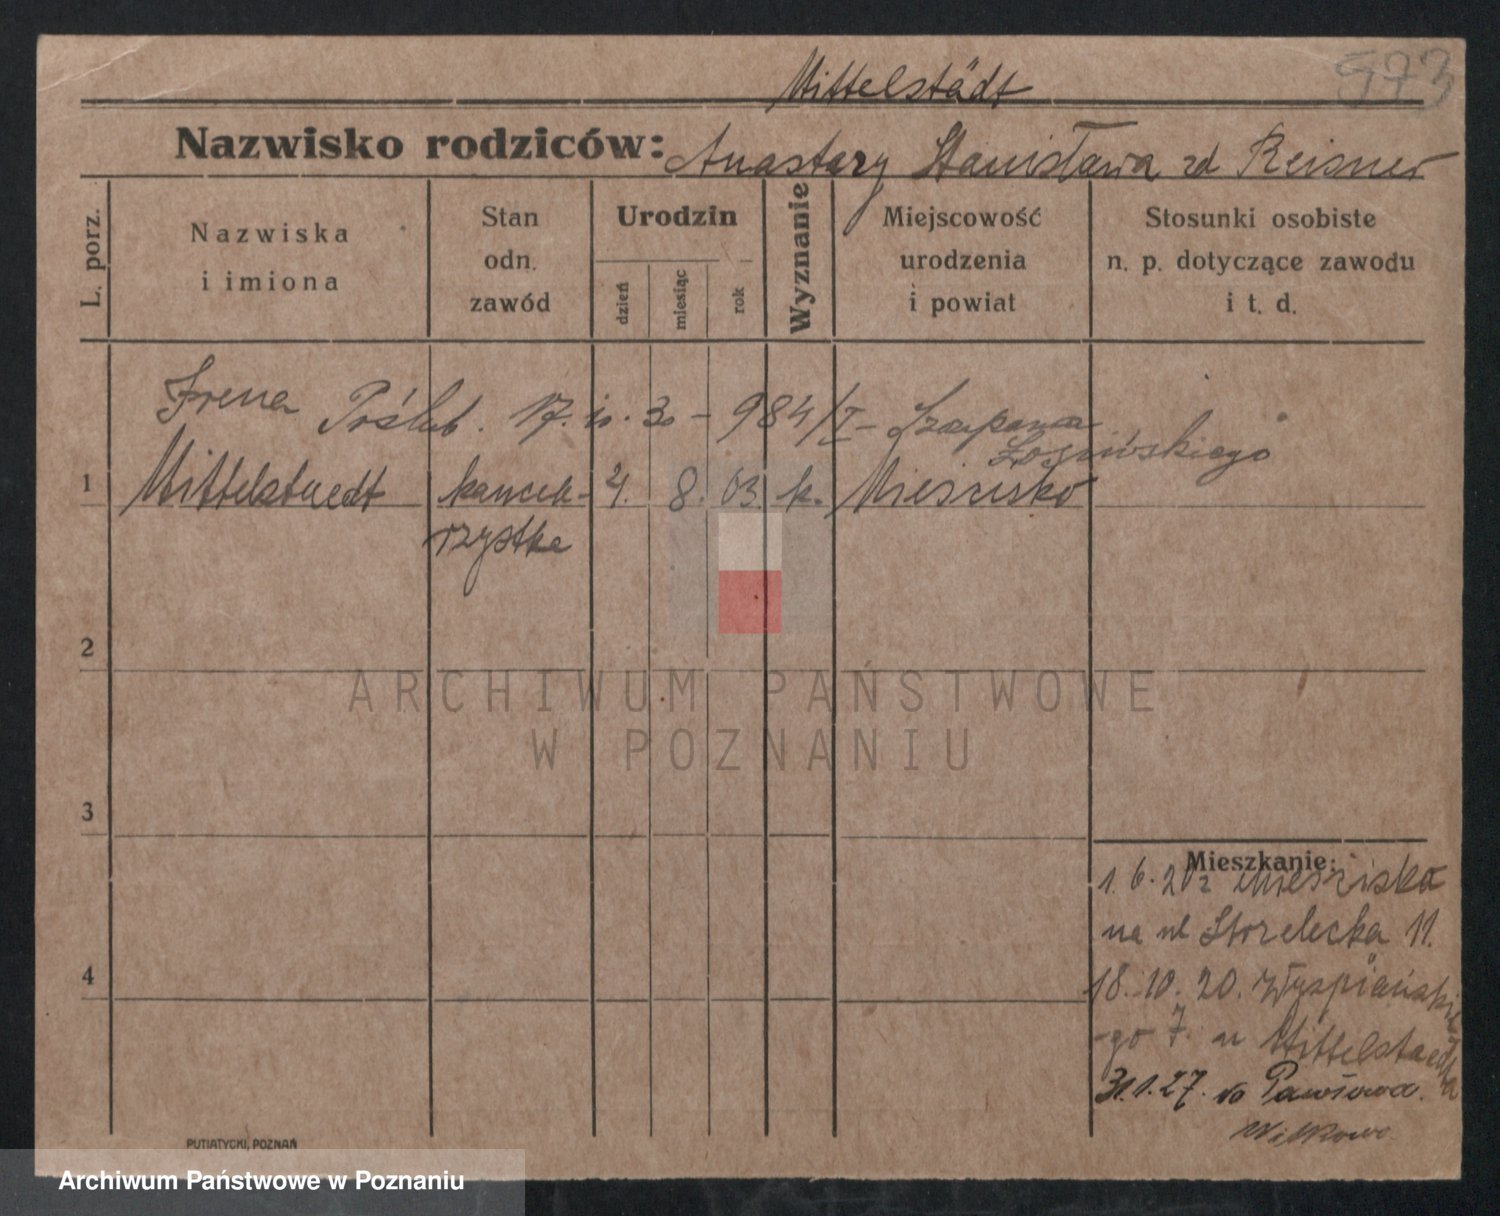 573
Mittelstädt
Nazwisko rodziców: Anastazy Stanisława zd Reisner
L. porz.
Nazwiska i imiona
Stan odn. zawód
Urodzin
dzień
miesiąc
rok
Wyznanie
Miejscowość urodzenia i powiat
Stosunki osobiste n. p. dotyczące zawodu i t. d.
Irena Poślub. 17. 10. 30 - 984/I - Szczepana
1 Mittelstaedt kanceli- 4. 8. 03. k. Mieścisko
rzystka
2
3
4
Mieszkanie:
1. 6. 20 z Mieściska
na ul Strzelecka 11.
18. 10. 20. Wyspiańskie
-go 7. u Mittelstaedta
31.1.27. do Pawłowa.
Witkowo.
PUTIATYCKI, POZNAŃ
ARCHIWUM PAŃSTWOWE
W POZNANIU
Archiwum Państwowe w Poznaniu